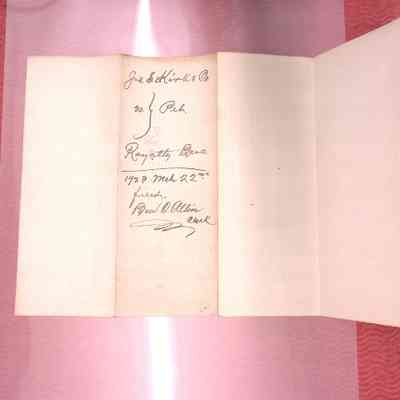 Jas E Kirk & Co
vs } Pet
Royalty
1928 Mch 22nd
filed
Ben D Allin
Clerk